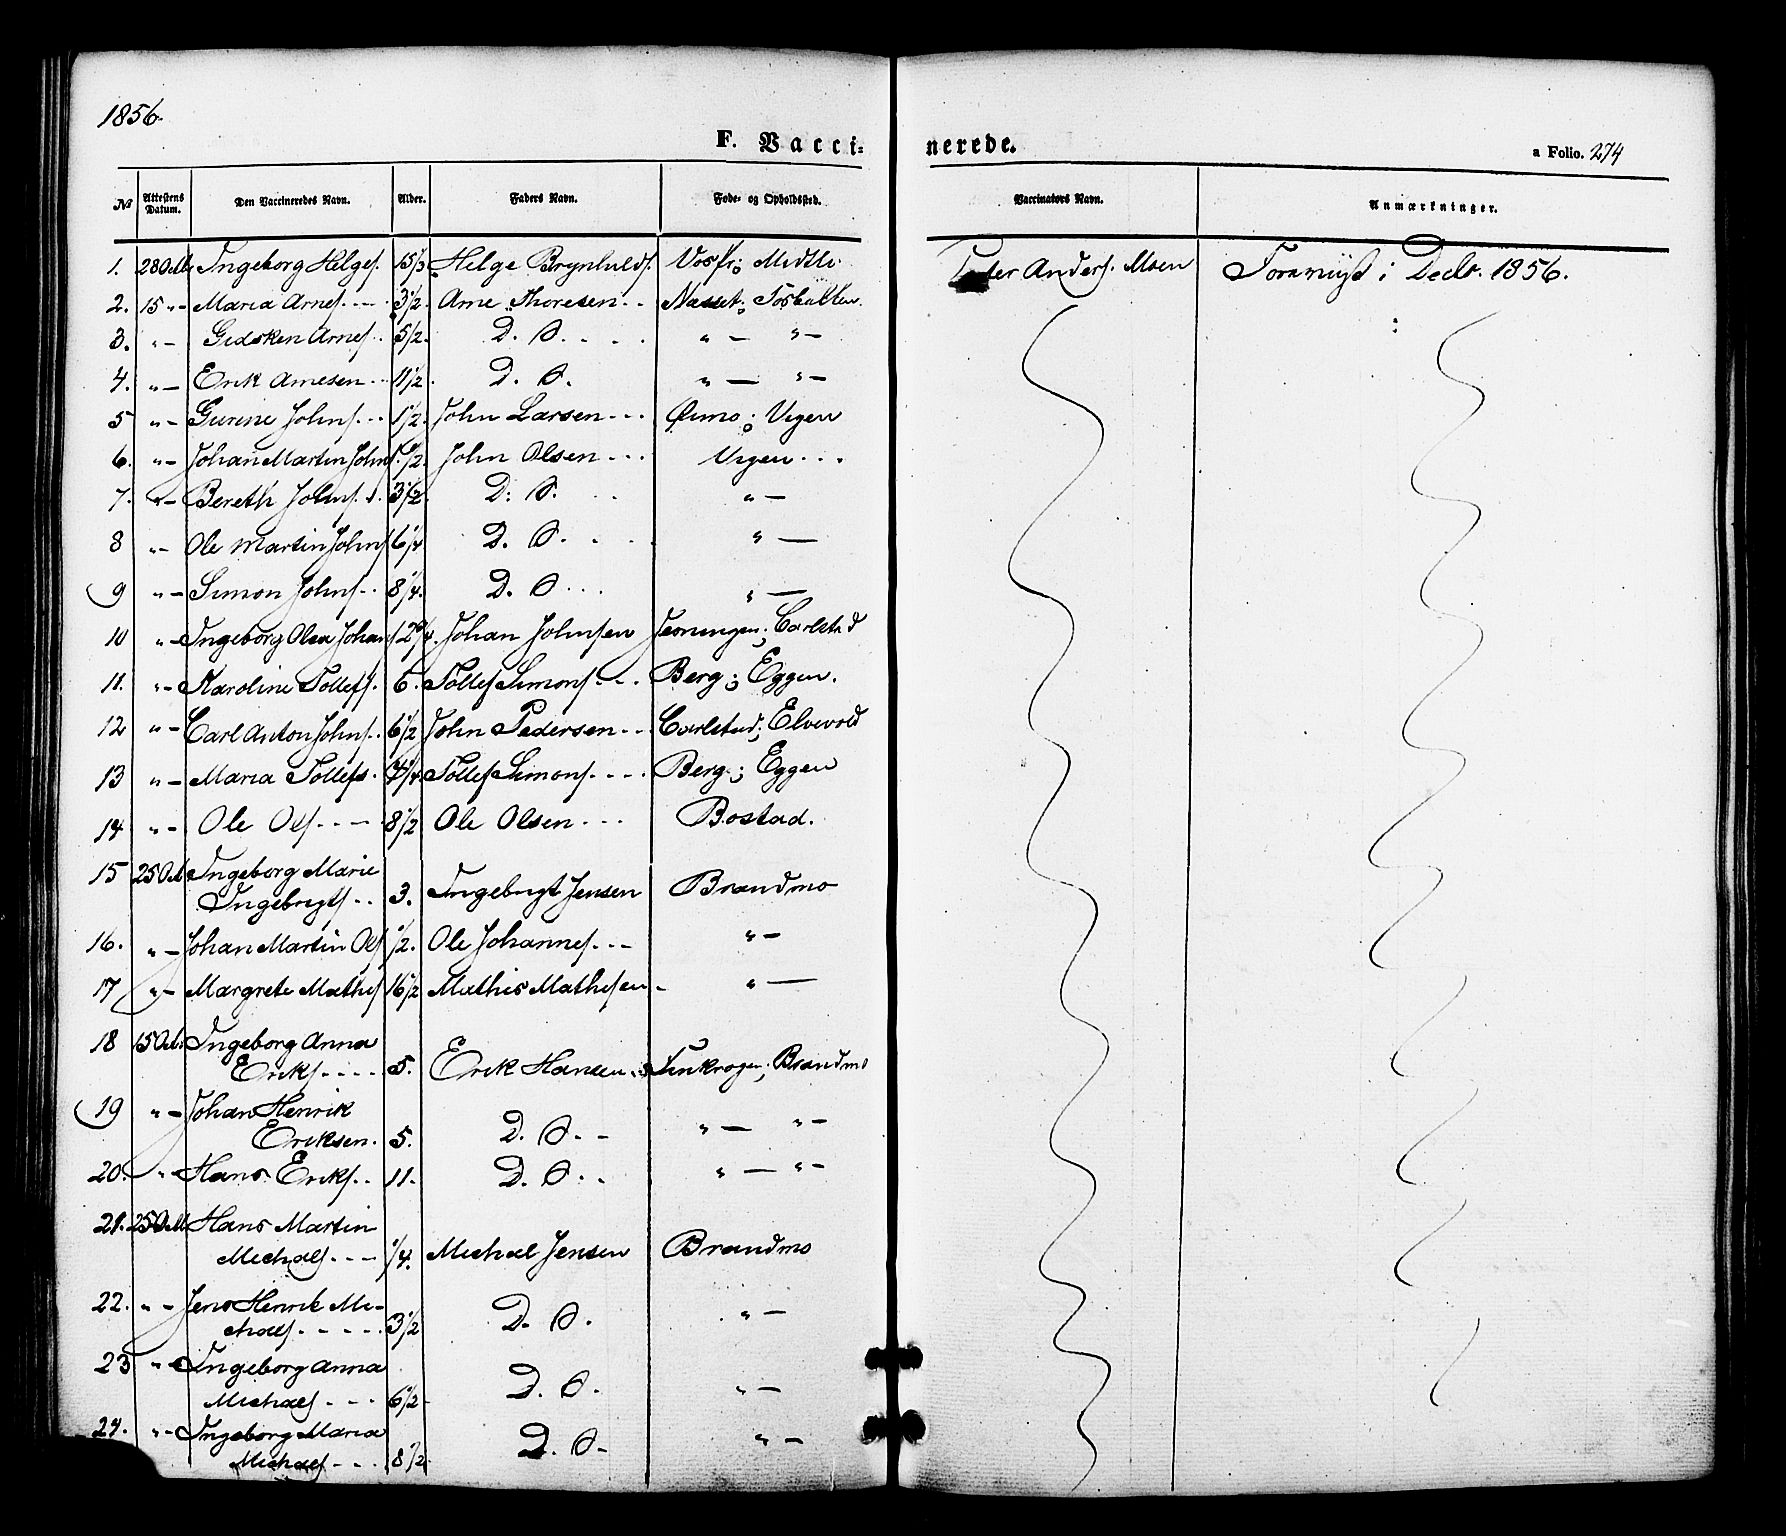 1856.
F. Vacci-
nerede.
a Folio. 274
No Attestens Datum. Den Vaccineredes Navn. Alder. Faders Navn. Føde- og Opholdssted. Vaccinators Navn. Anmærkninger.
1. 28 Helges. Helge Brynhilds. Peter Anders. Moen Decbr. 1856.
2. 15 "- Maria Arnes. --- 3 1/2. Arne Thoresen --
3. "- Gidsken Arnes. 5 1/2. D. O. " — "—
4. "— Erik Arnesen -- 11 1/2. D. O. " — "—
5 "— Gurine Johns. -- 1 1/2. John Larsen --- Øimo; Vigen
6. "— Johan Martin Johns. John Olsen --- Vigen ...
7. "— Bereth Johns. 3 1/2. D. O. "—
8 "- Ole Martin Johns 6 1/4 D. O. . . . " —
9 "— Simon Johns. -- 8 1/4. D. O ... " —
10 "- Ingeborg Olea Johans 12 3/4. Johan Johnsen Carlstad
11. "- Karoline Tollefs. 6. Tollef Simons. -- Berg; Eggen.
12 "— Carl Anton Johns. 6 1/2 John Pedersen -- Carlstad; Elvevold
13 "— Maria Tollefs. Tollef Simons. --- Berg; Eggen
14 "— Ole Ols. --- 8 1/2 Ole Olsen --- Bostad.
15 25 Ingeborg Marie
Ingebrigts. -- 3. Ingebrigt Jensen Brandmo
16. "— Johan Martin Ols 1/2. Ole Johannes. -- "—
17 "— Margrete Mathis 16 1/2 Mathis Mathisen - " —
18 15 Ingeborg Anna
Eriks. ---- 5. Erik Hansen Brandmo
19 "— Johan Henrik
Eriksen. 5. D. O. - " — "—
20. "- Hans Eriks. -- 11. D. O. - " — "—
21. 25 Hans Martin
Michaels. --- 1/4. Michael Jensen Brandmo
22. "- Jens Henrik Mi-
chaels. ----- 3 1/2 D. O. "—
23 "- Ingeborg Anna
Michaels. --- 6 1/2 D. O. "—
24. "- Ingeborg Maria
Michaels. --- 8 1/2 D. O- "—